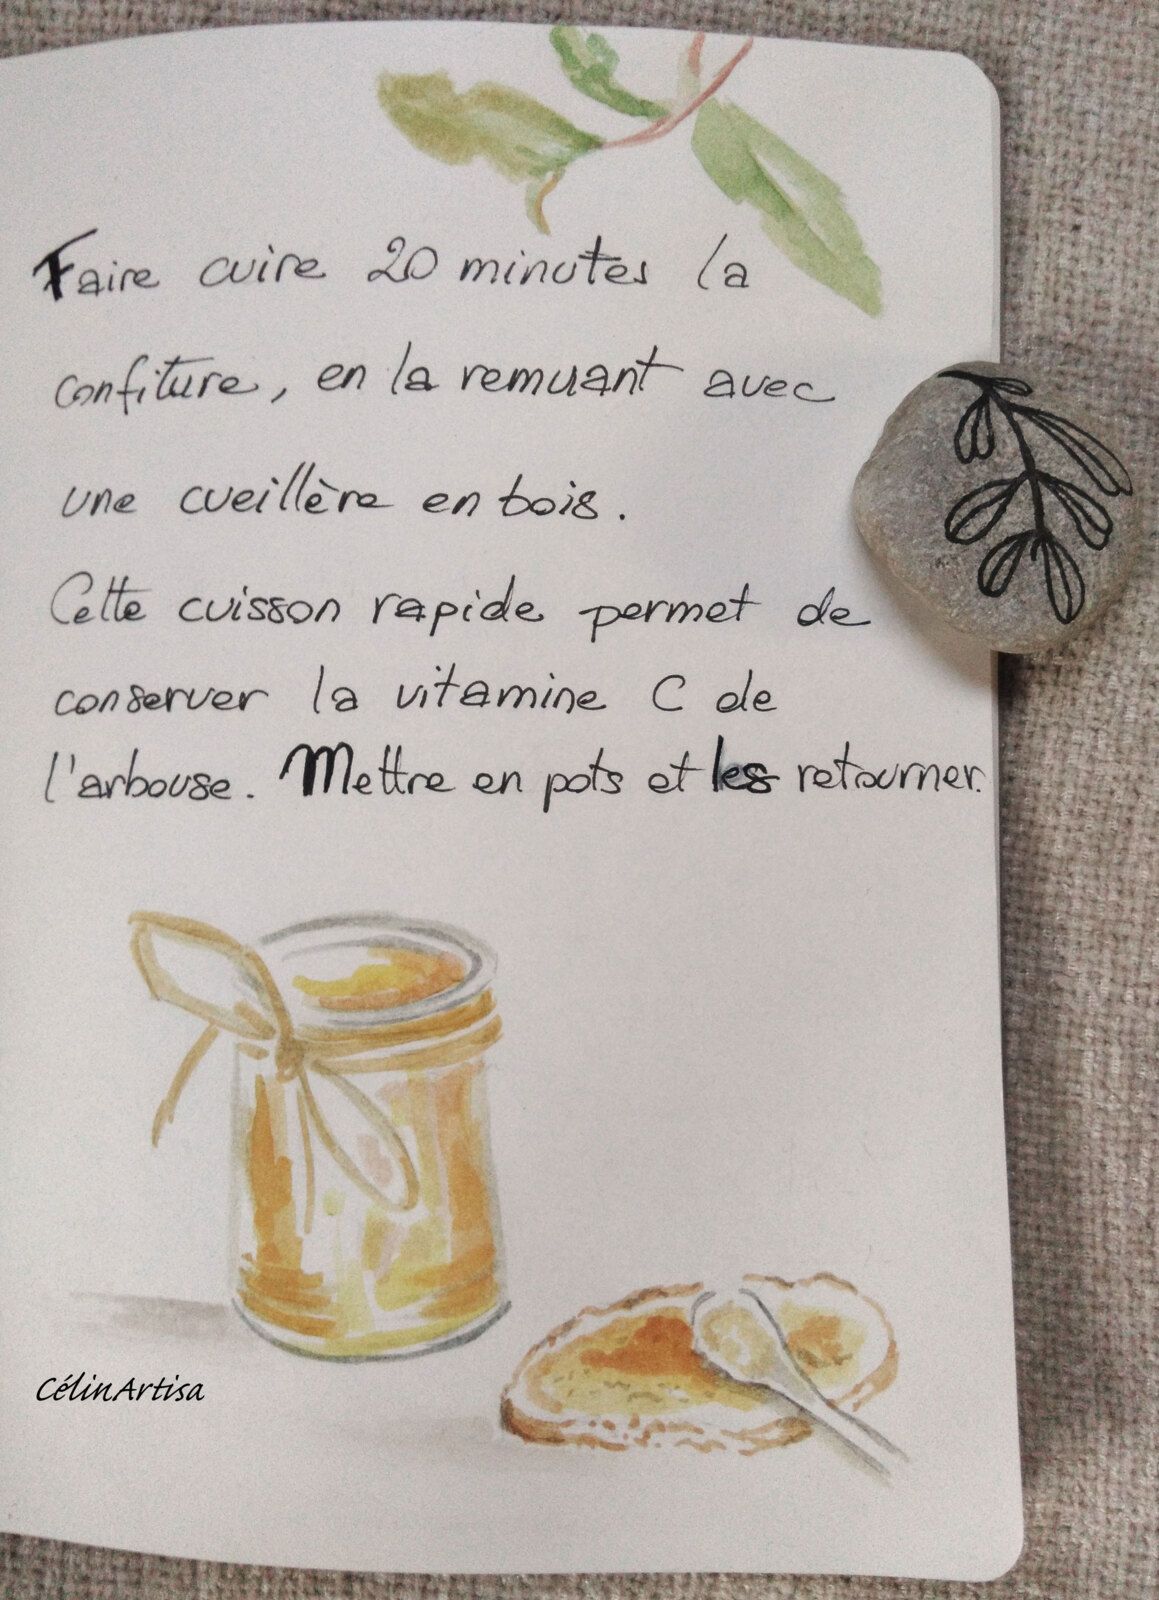 Faire cuire 20 minutes la
confiture, en la remuant avec
une cueillère en bois.
Cette cuisson rapide permet de
conserver la vitamine C de
l'arbouse. Mettre en pots et les retourner.
CélinArtisa